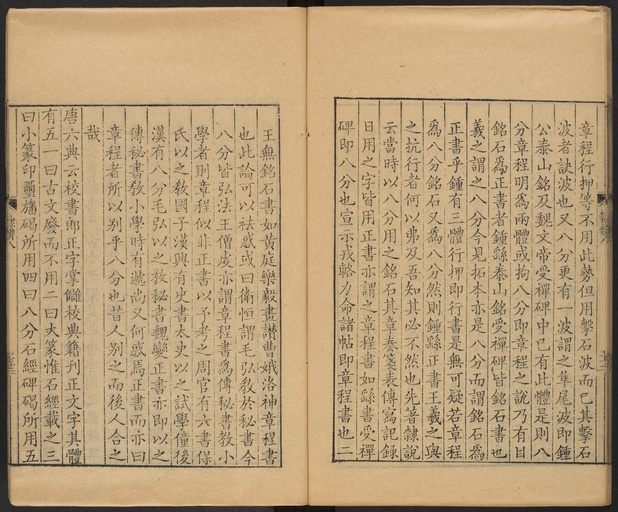 章程行押等不用此勢但用擊石波而已其擊石
波者訣波也又八分更有一波謂之隼尾波即鍾
公泰山銘及魏文帝受禪碑中已有此體是則八
分章程明爲兩體或拘八分即章程之說乃有目
銘石爲正書者鍾繇泰山銘受禪碑皆銘石書也
羲之謂之八分今見拓本亦是八分而謂銘石爲
正書乎鍾有三體行押即行書是無可疑若章程
爲八分銘石又爲八分然則鍾繇正書王羲之與
之抗行者何以弗及吾知其必不然也先著隸說
云當時以八分用之銘石其章奏箋表傳寫記錄
日用之字皆用正書亦謂之章程書如繇書受禪
碑即八分也宣示戎輅力命諸帖即章程書也二
王無銘石書如黃庭樂毅畫讚曹娥洛神章程書
也此論可以袪惑或曰衛恒謂毛弘敎於秘書今
八分皆弘法王僧虔亦謂章程書爲傳秘書敎小
學者則章程似非正書以予考之周官有六書保
氏以之敎國子漢興有史書太史以之試學僮後
漢有八分毛弘以之敎秘書魏變正書亦即以之
傳秘書敎小學時有遞尚又何惑焉正書而亦曰
章程者所以别乎八分也昔人别之而後人合之
哉
唐六典云校書郎正字掌讎校典籍刊正文字其體
有五一曰古文廢而不用二曰大篆惟石經載之三
曰小篆印璽旛碣所用四曰八分石經碑碣所用五